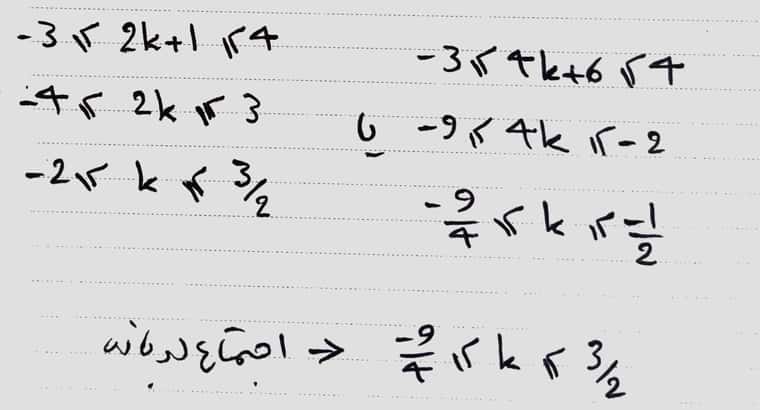 -3 ≤ 2k+1 ≤ 4
-4 ≤ 2k ≤ 3
-2 ≤ k ≤ 3/2
یا
-3 ≤ 4k+6 ≤ 4
-9 ≤ 4k ≤ -2
-9/4 ≤ k ≤ -1/2
اجتماع دو بازه → -9/4 ≤ k ≤ 3/2